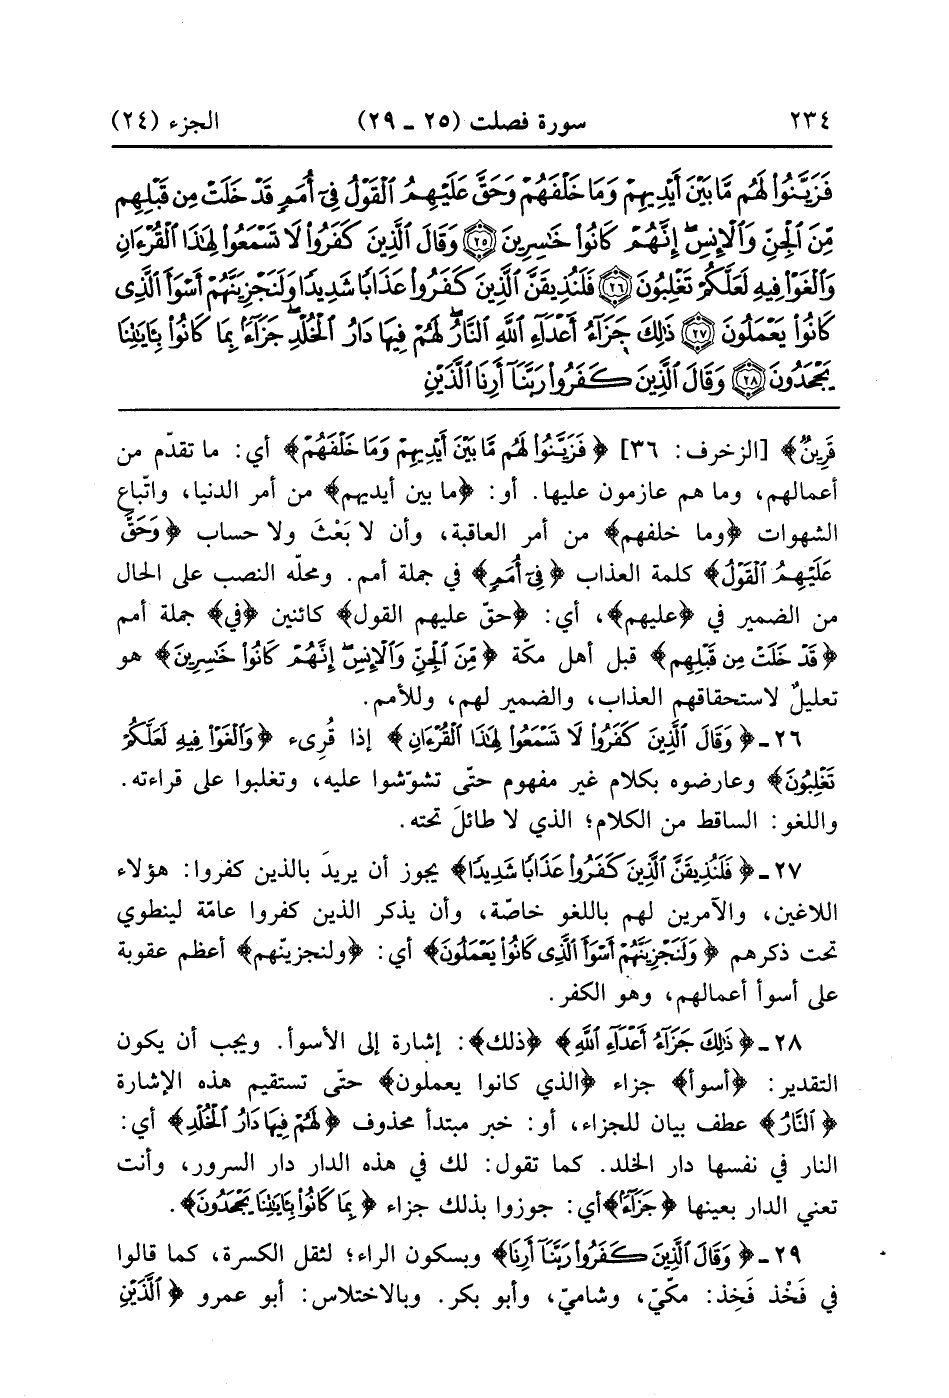 ٢٣٤ سورة فصلت (٢٥ ـ ٢٩) الجزء (٢٤)
فَزَيَّنُوا۟ لَهُم مَّا بَيْنَ أَيْدِيهِمْ وَمَا خَلْفَهُمْ وَحَقَّ عَلَيْهِمُ ٱلْقَوْلُ فِىٓ أُمَمٍ قَدْ خَلَتْ مِن قَبْلِهِم
مِّنَ ٱلْجِنِّ وَٱلْإِنسِ ۖ إِنَّهُمْ كَانُوا۟ خَٰسِرِينَ ﴿٢٥﴾ وَقَالَ ٱلَّذِينَ كَفَرُوا۟ لَا تَسْمَعُوا۟ لِهَٰذَا ٱلْقُرْءَانِ
وَٱلْغَوْا۟ فِيهِ لَعَلَّكُمْ تَغْلِبُونَ ﴿٢٦﴾ فَلَنُذِيقَنَّ ٱلَّذِينَ كَفَرُوا۟ عَذَابًا شَدِيدًا وَلَنَجْزِيَنَّهُمْ أَسْوَأَ ٱلَّذِى
كَانُوا۟ يَعْمَلُونَ ﴿٢٧﴾ ذَٰلِكَ جَزَآءُ أَعْدَآءِ ٱللَّهِ ٱلنَّارُ ۖ لَهُمْ فِيهَا دَارُ ٱلْخُلْدِ ۖ جَزَآءًۢ بِمَا كَانُوا۟ بِـَٔايَٰتِنَا
يَجْحَدُونَ ﴿٢٨﴾ وَقَالَ ٱلَّذِينَ كَفَرُوا۟ رَبَّنَآ أَرِنَا ٱلَّذَيْنِ
قَرِينٌ﴾ [الزخرف: ٣٦] ﴿فَزَيَّنُوا۟ لَهُم مَّا بَيْنَ أَيْدِيهِمْ وَمَا خَلْفَهُمْ﴾ أي: ما تقدّم من
أعمالهم، وما هم عازمون عليها. أو: ﴿ما بين أيديهم﴾ من أمر الدنيا، واتّباعِ
الشهوات ﴿وما خلفهم﴾ من أمر العاقبة، وأن لا بَعْثَ ولا حساب ﴿وَحَقَّ
عَلَيْهِمُ ٱلْقَوْلُ﴾ كلمة العذاب ﴿فِىٓ أُمَمٍ﴾ في جملة أمم. ومحلّه النصب على الحال
من الضمير في ﴿عليهم﴾، أي: ﴿حقّ عليهم القول﴾ كائنين ﴿في﴾ جملة أمم
﴿قَدْ خَلَتْ مِن قَبْلِهِم﴾ قبل أهل مكّة ﴿مِّنَ ٱلْجِنِّ وَٱلْإِنسِ ۖ إِنَّهُمْ كَانُوا۟ خَٰسِرِينَ﴾ هو
تعليلٌ لاستحقاقهم العذاب، والضمير لهم، وللأمم.
٢٦ ـ ﴿وَقَالَ ٱلَّذِينَ كَفَرُوا۟ لَا تَسْمَعُوا۟ لِهَٰذَا ٱلْقُرْءَانِ﴾ إذا قُرِىء ﴿وَٱلْغَوْا۟ فِيهِ لَعَلَّكُمْ
تَغْلِبُونَ﴾ وعارضوه بكلام غير مفهوم حتّى تشوّشوا عليه، وتغلبوا على قراءته.
واللغو: الساقط من الكلام؛ الذي لا طائلَ تحته.
٢٧ ـ ﴿فَلَنُذِيقَنَّ ٱلَّذِينَ كَفَرُوا۟ عَذَابًا شَدِيدًا﴾ يجوز أن يريدَ بالذين كفروا: هؤلاء
اللاغين، والآمرين لهم باللغو خاصّة، وأن يذكر الذين كفروا عامّة لينطوي
تحت ذكرهم ﴿وَلَنَجْزِيَنَّهُمْ أَسْوَأَ ٱلَّذِى كَانُوا۟ يَعْمَلُونَ﴾ أي: ﴿ولنجزينّهم﴾ أعظم عقوبة
على أسوأ أعمالهم، وهو الكفر.
٢٨ ـ ﴿ذَٰلِكَ جَزَآءُ أَعْدَآءِ ٱللَّهِ﴾ ﴿ذلك﴾: إشارة إلى الأسوأ. ويجب أن يكون
التقدير: ﴿أسوأ﴾ جزاء ﴿الذي كانوا يعملون﴾ حتّى تستقيم هذه الإشارة
﴿ٱلنَّارُ﴾ عطف بيان للجزاء، أو: خبر مبتدأ محذوف ﴿لَهُمْ فِيهَا دَارُ ٱلْخُلْدِ﴾ أي:
النار في نفسها دار الخلد. كما تقول: لك في هذه الدار دار السرور، وأنت
تعني الدار بعينها ﴿جَزَآءًۢ﴾ أي: جوزوا بذلك جزاء ﴿بِمَا كَانُوا۟ بِـَٔايَٰتِنَا يَجْحَدُونَ﴾.
٢٩ ـ ﴿وَقَالَ ٱلَّذِينَ كَفَرُوا۟ رَبَّنَآ أَرِنَا﴾ وبسكون الراء؛ لثقل الكسرة، كما قالوا
في فَخْذ فَخِذ: مكّيّ، وشاميّ، وأبو بكر. وبالاختلاس: أبو عمرو ﴿ٱلَّذَيْنِ